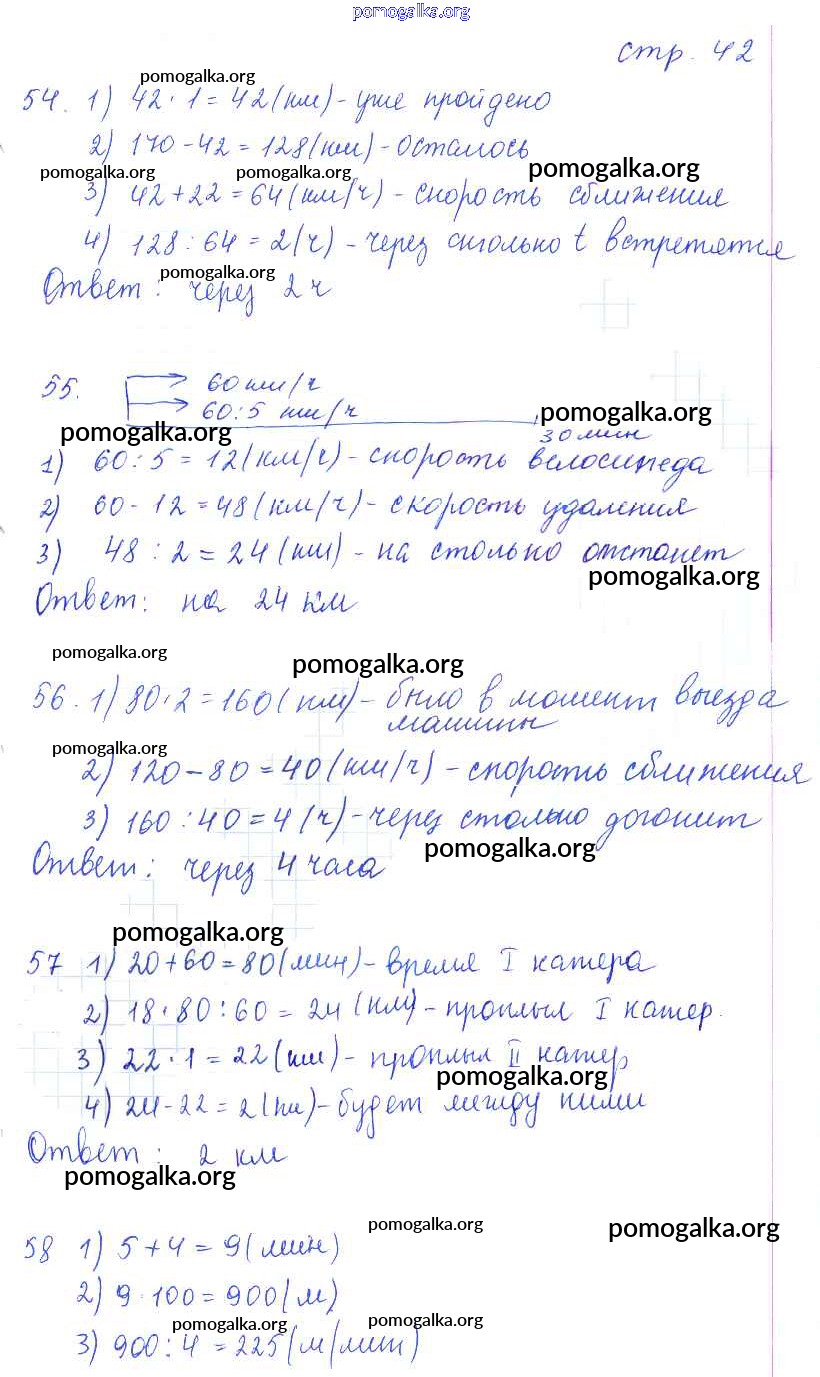 pomogalka.org
стр. 42
pomogalka.org
54. 1) 42 · 1 = 42 (км) - уже пройдено
2) 170 - 42 = 128 (км) - осталось
pomogalka.org pomogalka.org pomogalka.org
3) 42 + 22 = 64 (км/ч) - скорость сближения
4) 128 : 64 = 2 (ч) - через сколько t встретятся
pomogalka.org
Ответ: через 2 ч
55. 60 км/ч
60:5 км/ч
pomogalka.org pomogalka.org
30 мин
1) 60 : 5 = 12 (км/ч) - скорость велосипеда
2) 60 - 12 = 48 (км/ч) - скорость удаления
3) 48 : 2 = 24 (км) - на столько отстанет
pomogalka.org
Ответ: на 24 км
pomogalka.org pomogalka.org
56. 1) 80 · 2 = 160 (км) - было в момент выезда
машины
pomogalka.org
2) 120 - 80 = 40 (км/ч) - скорость сближения
3) 160 : 40 = 4 (ч) - через столько догонит
pomogalka.org
Ответ: через 4 часа
pomogalka.org
57 1) 20 + 60 = 80 (мин) - время I катера
2) 18 · 80 : 60 = 24 (км) - проплыл I катер.
3) 22 · 1 = 22 (км) - проплыл II катер
pomogalka.org
4) 24 - 22 = 2 (км) - будет между ними
Ответ: 2 км
pomogalka.org
pomogalka.org pomogalka.org
58 1) 5 + 4 = 9 (мин)
2) 9 · 100 = 900 (м)
pomogalka.org pomogalka.org
3) 900 : 4 = 225 (м/мин)